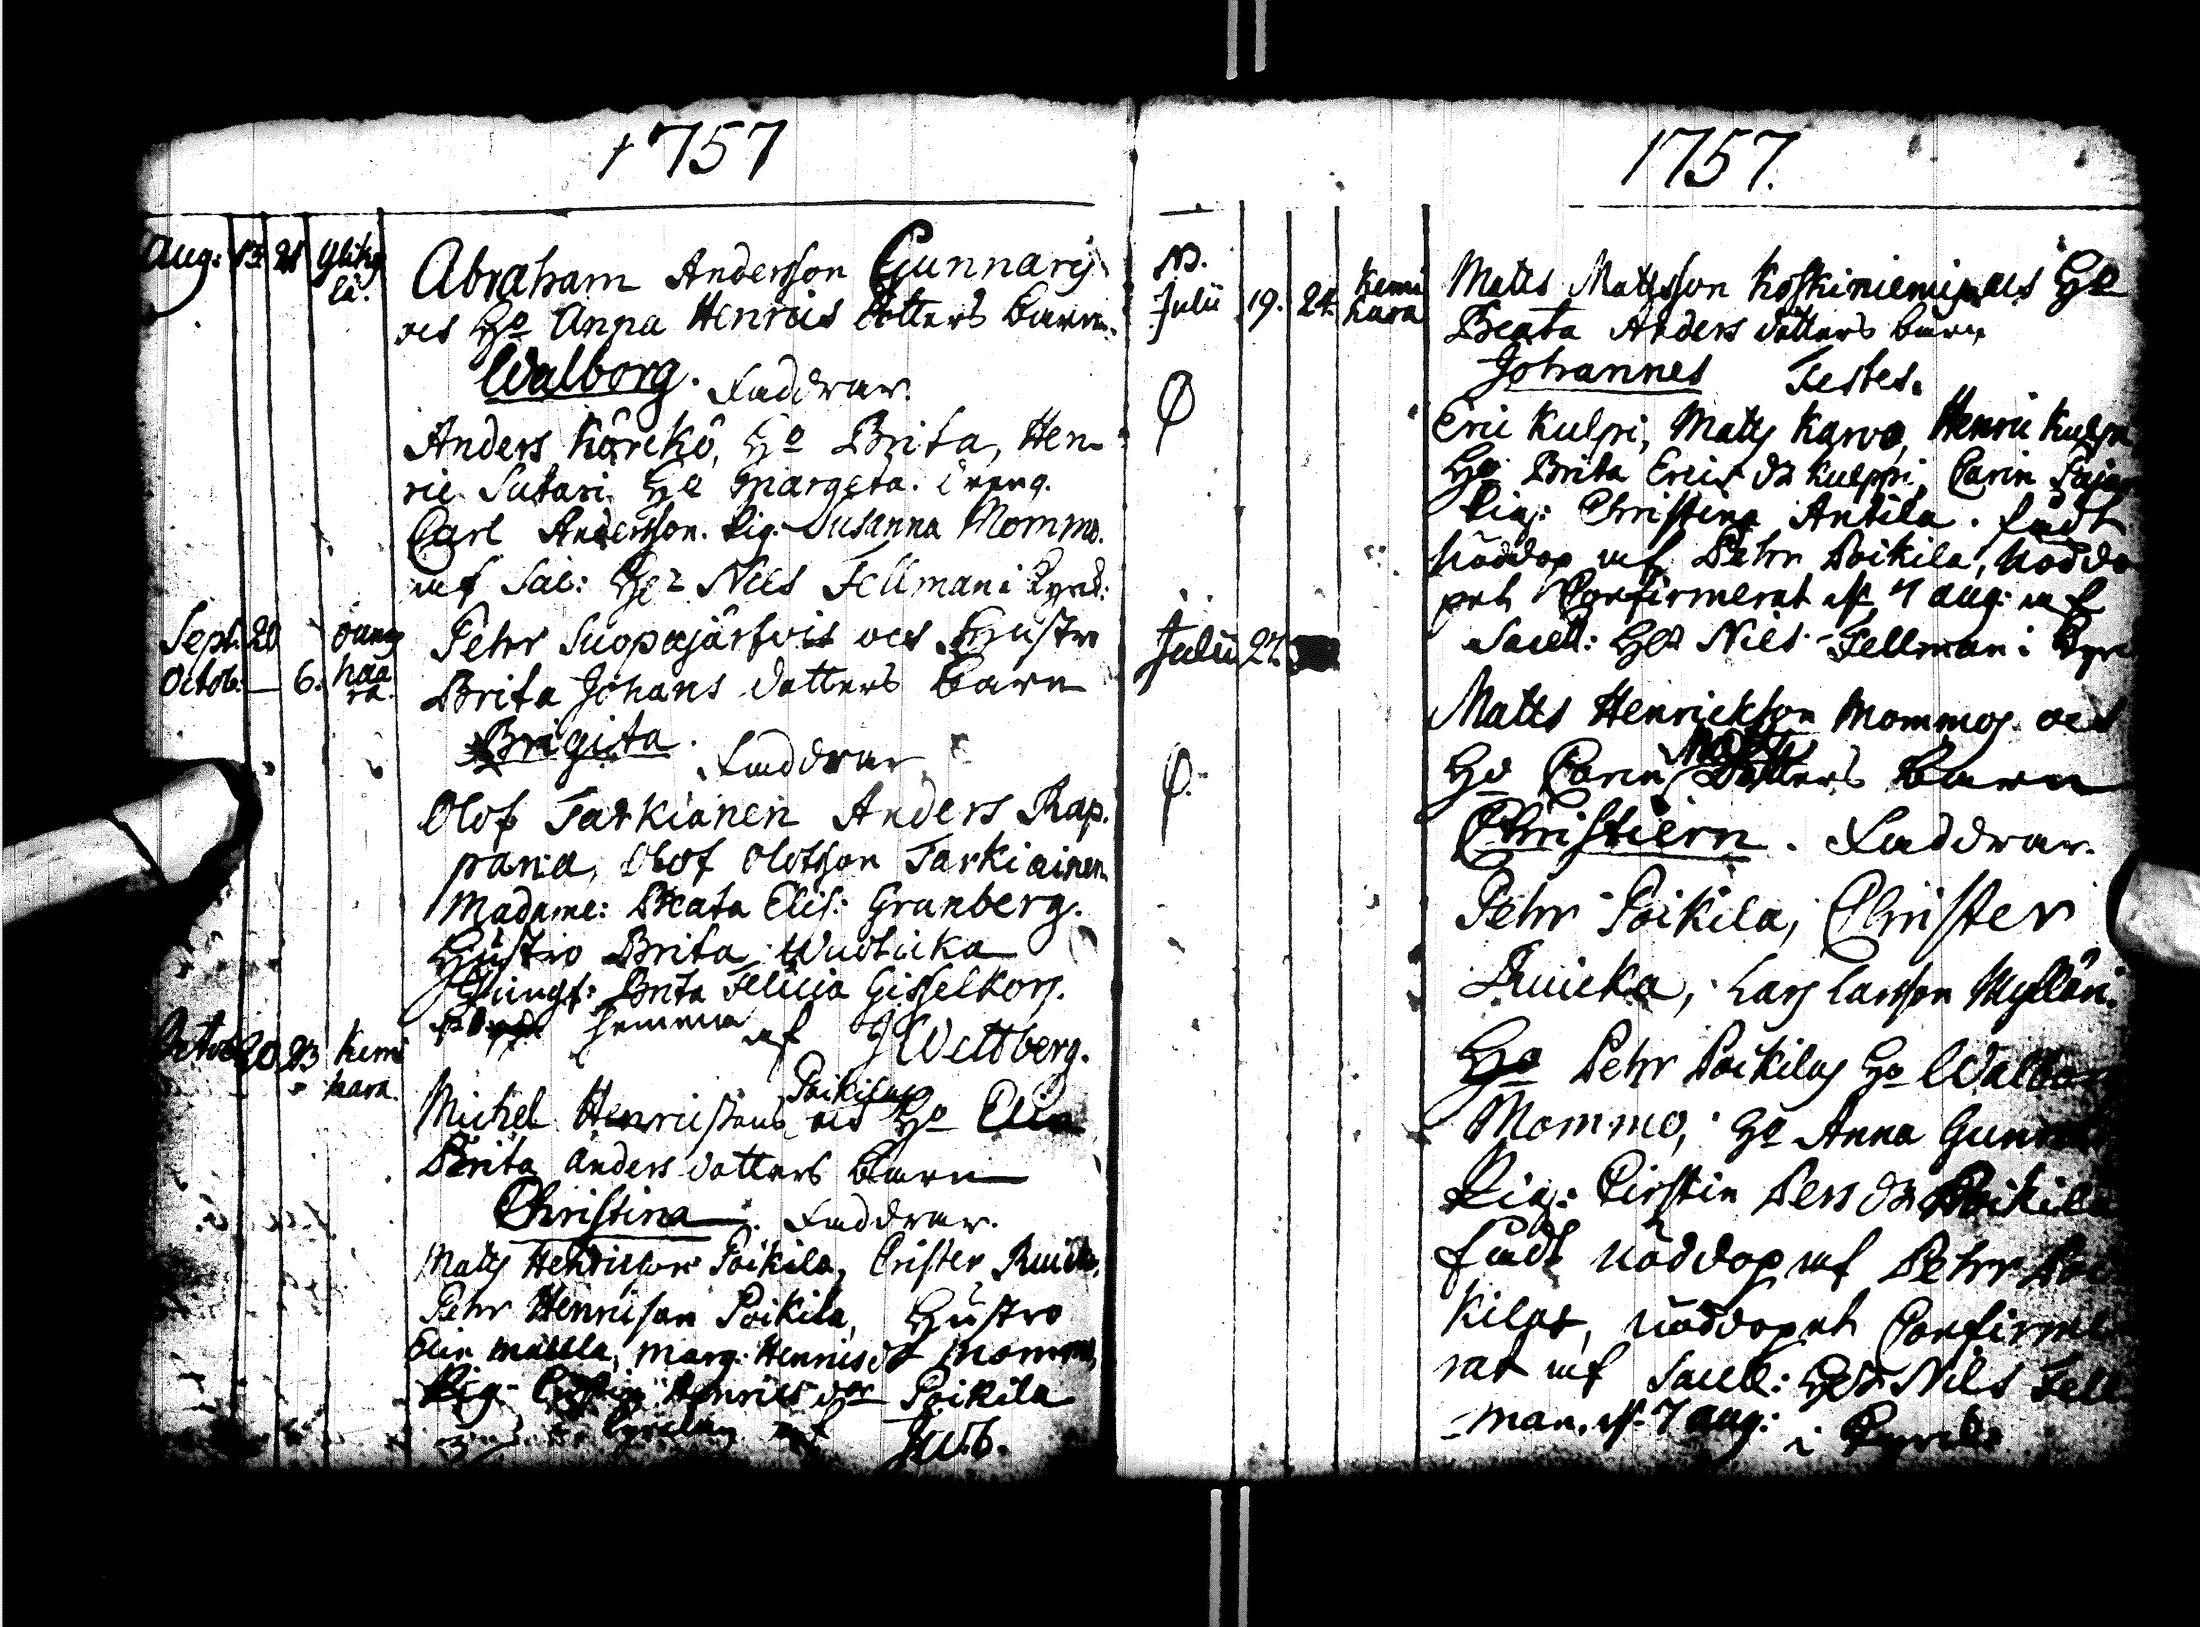 1757
Aug: 13. 21 Ylikÿ
lä.
Abraham Andersson Gunnari
och Ho Anna Henrics dotters barn
Walborg. Faddrar.
Anders Körckö, Ho Brita, Hen-
ric Sutari Ho Margeta. dreng.
Carl Andersson. Pig. Susanna Mommo.
af Sac: Her Nils Fellman i Kyrck:
Sept. 20 öung
Octob: — 6. haa
ra.
Pehr Suopajärfvis och Hustro
Brita Johans dotters barn
Brigita. Faddrar
Olof Tarkianen Anders Rap-
pana, Olof Olofsson Tarkiainen
Madame: Beata Elis: Granberg.
Hustro Brita
Jungf: Brita Felicia Gisselkors.
hemma af J Wettberg.
Octob 20. 23 Kemi
hara.
Poikilas
Michel Henrissons och Ho Elin
Brita anders dotters barn
Christina. Faddrar.
Matts Henricson Poikila, Crister Ruick,
Pehr Henrison Poikila, Hustro
Elin marg: Henrics dr Mommo,
Pig. Henrics dor Poikila
af JWb.
1757.
NB.
Julii 19. 24. Kemi
hara
Matts Mattsson Koskiniemi och Ho
Beata Anders dotters barn
Johannes Testes.
Eric Kulpi, Matts Karvo, Henric Kulpi
Ho Brita Erics dr Kulppi, Carin
Pig: Christina Antila. fådt
nöddop af Pehr Poikila, Noddo
pet Confirmerat d. 7 aug: af
Sacell: Her Nils Fellman i Kyrc
Julii 22.
Matts Henrickson Mommos och
Matts
Ho Carin Dotters barn
Christiern. Faddrar.
Pehr Poikila, Christer
Ruicka, Lars Larsson Mylläri.
Ho Pehr Poikilas Ho Walbor
Mommo, Ho Anna Gunnari
Pig: Cirstin Pers dr Poikila
fådt nöddop af Pehr Poi
kilas, nöddopet Confirme
rat af Sacell: Her Nils Fell
-man. d. 7 aug: i